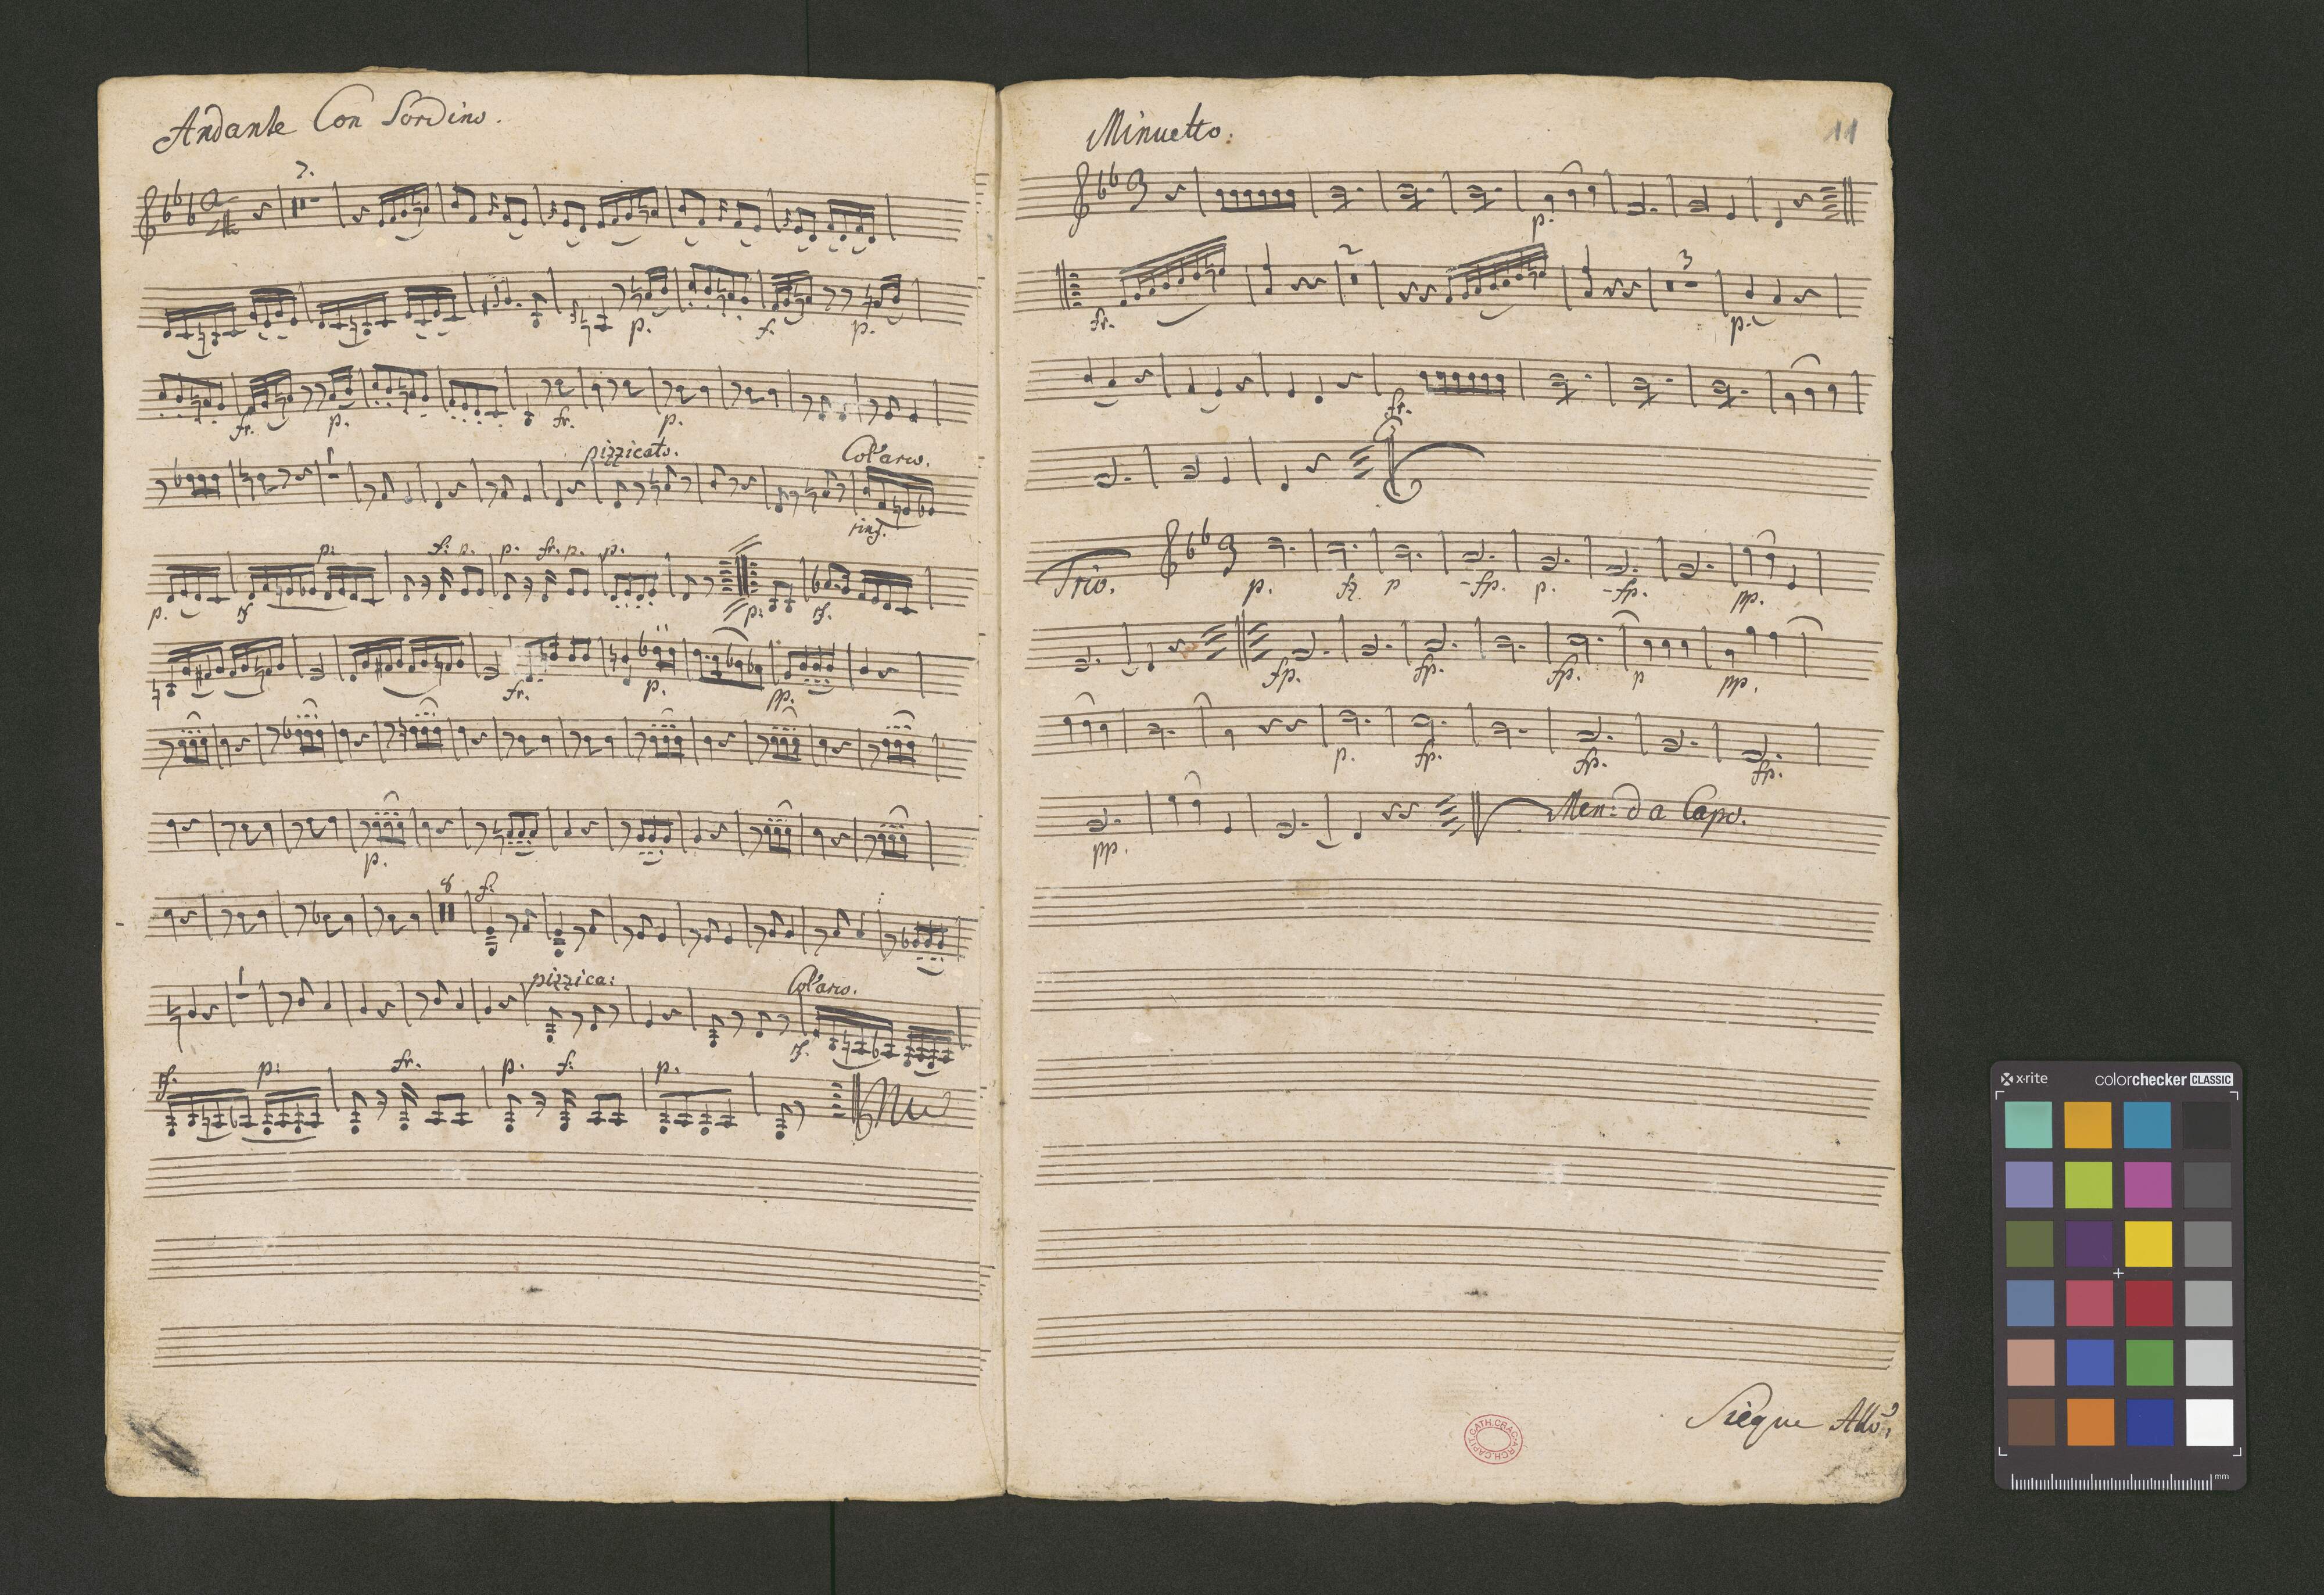 Andante Con Sordino.
7.
p. f. p.
fr. p. fr. p.
1 pizzicato. Col'arco.
rinf.
p: f: p. p. fr. p. p.
p. rf p: rf.
fr. p. pp.
p.
8 f:
1 pizzica: Col'arco.
rf.
rf. p: fr. p. f: p.
11
Minuetto:
3
p.
2 3
fr. p.
fr.
Trio. 3
p. fz. p fp. p. fp. pp.
fp. fp. fp. p pp.
p. fp. fp. fp.
Men: da Capo.
pp.
Siegue Allo:
ARCH.CAPIT.CATH.CRAC.
x-rite colorchecker CLASSIC
mm